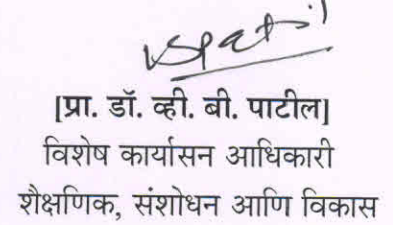 [प्रा. डॉ. व्ही. बी. पाटील]
विशेष कार्यासन आधिकारी
शैक्षणिक, संशोधन आणि विकास